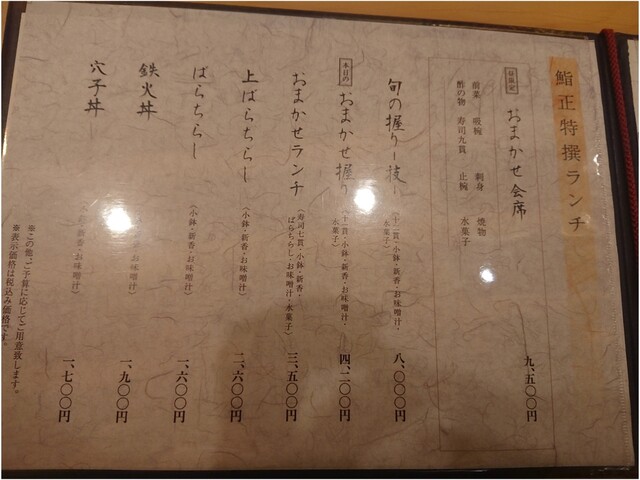 鮨正特撰ランチ
昼限定
おまかせ会席
前菜 吸椀 刺身 焼物
酢の物 寿司九貫 止椀 水菓子
九、五〇〇円
旬の握りー技ー
（十二貫・小鉢・新香・お味噌汁・
水菓子）
八、〇〇〇円
本日の
おまかせ握り
（十一貫・小鉢・新香・お味噌汁・
水菓子）
四、二〇〇円
おまかせランチ
（寿司七貫・小鉢・新香・
ばらちらし・お味噌汁・水菓子）
三、五〇〇円
上ばらちらし
（小鉢・新香・お味噌汁）
二、六〇〇円
ばらちらし
（小鉢・新香・お味噌汁）
一、六〇〇円
鉄火丼
新香・お味噌汁）
一、九〇〇円
穴子丼
新香・お味噌汁）
一、七〇〇円
※この他、ご予算に応じてご用意致します。
※表示価格は税込み価格です。